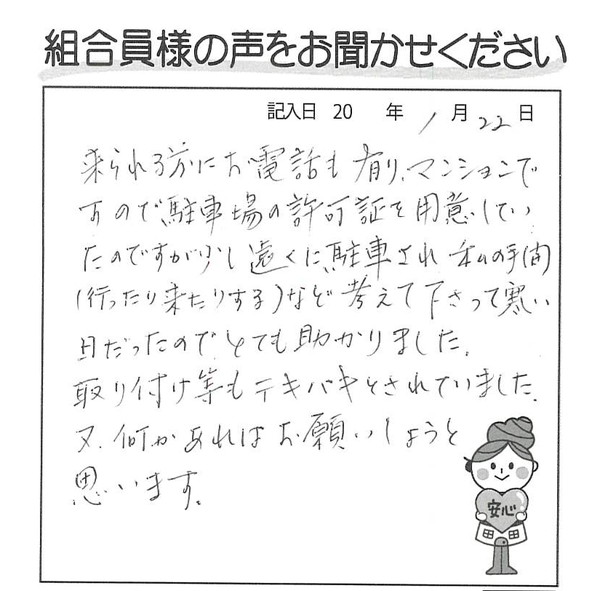 組合員様の声をお聞かせください
記入日 20 年 1 月 22 日
来られる前にお電話も有り、マンションで
すので駐車場の許可証を用意してい
たのですが少し遠くに駐車され私の手間
(行ったり来たりする)など考えて下さって寒い
日だったのでとても助かりました。
取り付け等もテキパキとされていました。
又、何かあればお願いしようと
思います。
安心